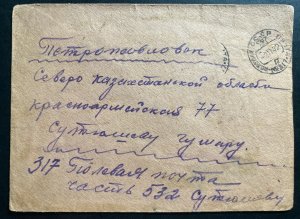 Петропавловск
Северо Казахстанской области
Красноармейская 77
Сутюшеву Гумару
317 Полевая почта
часть 532 Сутюшеву